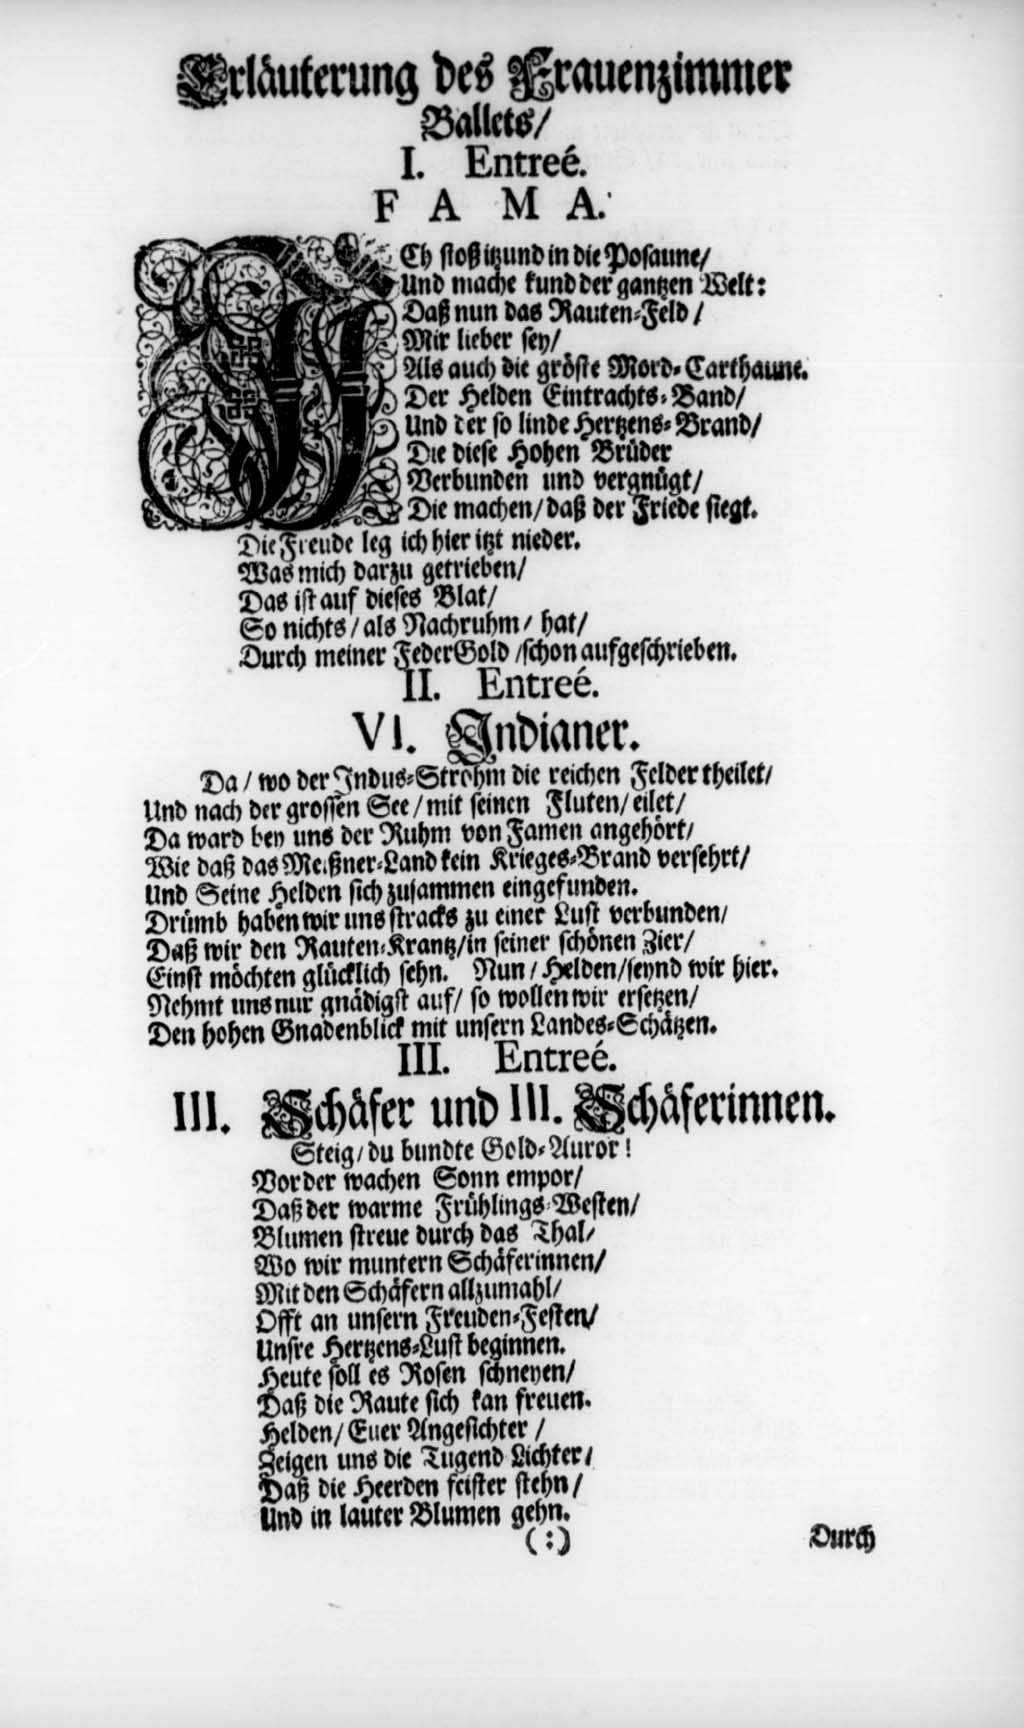 Erläuterung des Frauenzimmer
Ballets/
I. Entreé.
F A M A.
ICh stoß itzund in die Posaune/
Und mache kund der gantzen Welt:
Daß nun das Rauten-Feld/
Mir lieber sey/
Als auch die gröste Mord-Carthaune.
Der Helden Eintrachts-Band/
Und der so linde Hertzens-Brand/
Die diese Hohen Brüder
Verbunden und vergnügt/
Die machen/ daß der Friede siegt.
Die Freude leg ich hier itzt nieder.
Was mich darzu getrieben/
Das ist auf dieses Blat/
So nichts/ als Nachruhm/ hat/
Durch meiner Feder Gold/ schon aufgeschrieben.
II. Entreé.
VI. Indianer.
Da/ wo der Indus-Strohm die reichen Felder theilet/
Und nach der grossen See/ mit seinen Fluten/ eilet/
Da ward bey uns der Ruhm von Famen angehört/
Wie daß das Meißner-Land kein Krieges-Brand versehrt/
Und Seine Helden sich zusammen eingefunden.
Drümb haben wir uns stracks zu einer Lust verbunden/
Daß wir den Rauten-Krantz/ in seiner schönen Zier/
Einst möchten glücklich sehn. Nun/ Helden/ seynd wir hier.
Nehmt uns nur gnädigst auf/ so wollen wir ersetzen/
Den hohen Gnadenblick mit unsern Landes-Schätzen.
III. Entreé.
III. Schäfer und III. Schäferinnen.
Steig/ du bundte Gold-Auror!
Vor der wachen Sonn empor/
Daß der warme Frühlings-Westen/
Blumen streue durch das Thal/
Wo wir muntern Schäferinnen/
Mit den Schäfern allzumahl/
Offt an unsern Freuden-Festen/
Unsre Hertzens-Lust beginnen.
Heute soll es Rosen schneyen/
Daß die Raute sich kan freuen.
Helden/ Euer Angesichter/
Zeigen uns die Tugend Lichter/
Daß die Heerden feister stehn/
Und in lauter Blumen gehn.
(:) Durch